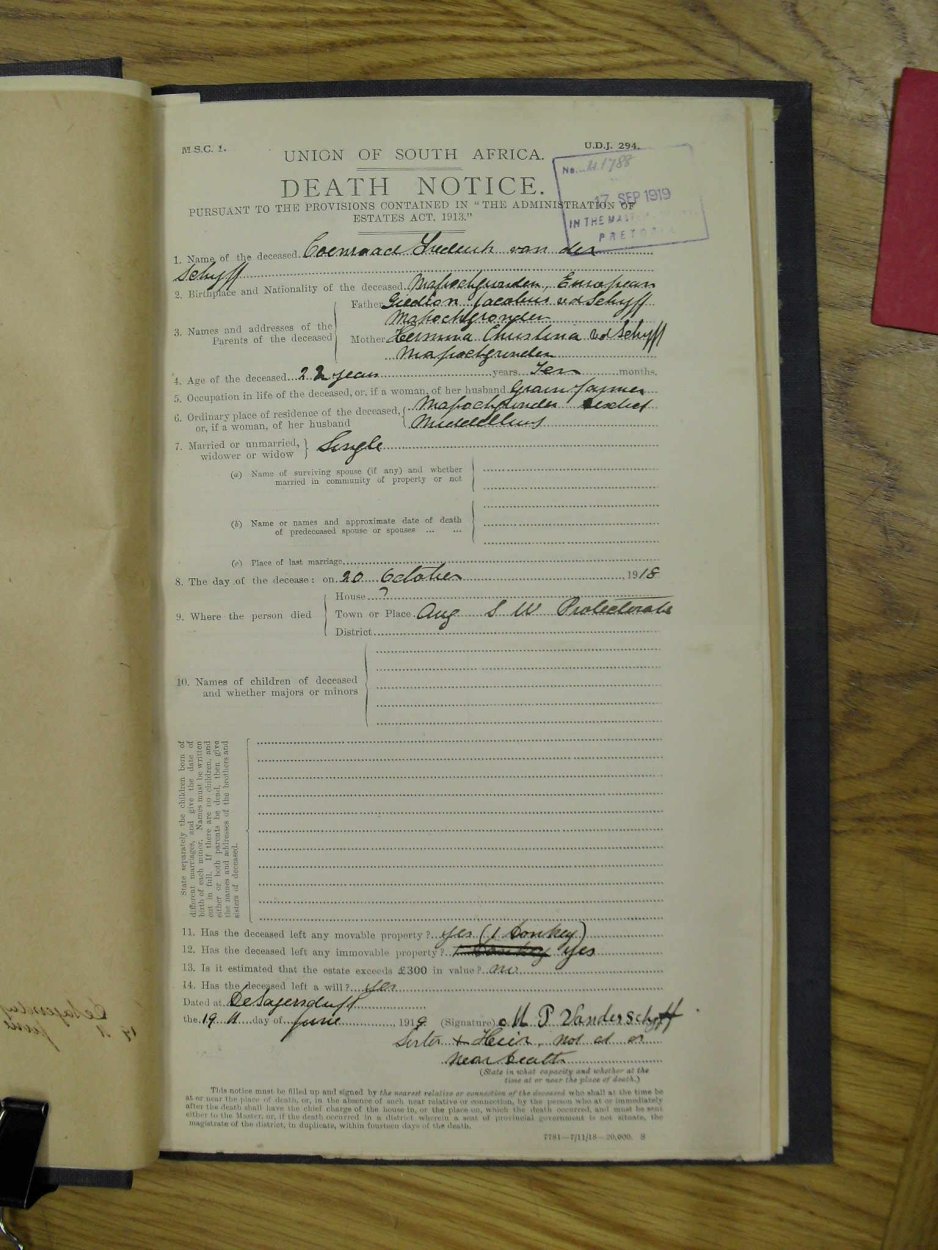 M.S.C. 1.
U.D.J. 294.
UNION OF SOUTH AFRICA.
No. 41788
DEATH NOTICE.
17 SEP 1919
PURSUANT TO THE PROVISIONS CONTAINED IN "THE ADMINISTRATION OF
ESTATES ACT, 1913."
IN THE MASTER
PRETORIA
1. Name of the deceased Coenraad Frederik van der
Schyff
2. Birthplace and Nationality of the deceased Mapochgronden, European
3. Names and addresses of the Parents of the deceased
Father Gedion Jacobus v d Schyff
Mapochgronden
Mother Hermina Christina v d Schyff
Mapochgronden
4. Age of the deceased 22 years years Ten months.
5. Occupation in life of the deceased, or, if a woman, of her husband Grain farmer
6. Ordinary place of residence of the deceased, Mapochgronden District
or, if a woman, of her husband Middelburg
7. Married or unmarried, widower or widow Single
(a) Name of surviving spouse (if any) and whether
married in community of property or not
(b) Name or names and approximate date of death
of predeceased spouse or spouses ... ...
(c) Place of last marriage
8. The day of the decease: on 20 October 1918
9. Where the person died
House ?
Town or Place Aug S W Protectorate
District
10. Names of children of deceased
and whether majors or minors
State separately the children born of
different marriages, and give the date of
birth of each minor. Names must be written
out in full. If there are no children, and
either or both parents be dead, then give
the names and addresses of the brothers and
sisters of deceased.
11. Has the deceased left any movable property? yes (1 Donkey)
12. Has the deceased left any immovable property? yes
13. Is it estimated that the estate exceeds £300 in value? no
14. Has the deceased left a will? yes
Dated at
the 19 th day of June 1919 (Signature) M P Vanderschyff
Sister & Heir, not at or
near death
(State in what capacity and whether at the
time at or near the place of death.)
This notice must be filled up and signed by the nearest relative or connection of the deceased who shall at the time be
at or near the place of death, or, in the absence of such near relative or connection, by the person who at or immediately
after the death shall have the chief charge of the house in, or the place on, which the death occurred, and must be sent
either to the Master, or, if the death occurred in a district wherein a seat of provincial government is not situate, the
magistrate of the district, in duplicate, within fourteen days of the death.
7781—7/11/18—20,000. S